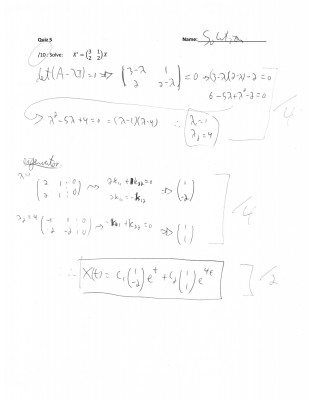 Quiz 5 Name: Solution
/10: Solve: X' = (3 1; 2 2) X
det(A-λI)=0 ⇒ |3-λ 1; 2 2-λ| = 0 ⇒ (3-λ)(2-λ)-2=0
6-5λ+λ²-2=0
→ λ²-5λ+4=0 = (λ-1)(λ-4) ∴ λ₁=1
λ₂=4
/4
λ=1
(2 1 : 0; 2 1 : 0) → 2k₁₁+k₁₂=0 ⇒ (1; -2)
2k₁₁=-k₁₂
λ₂=4 (-1 1 : 0; 2 -2 : 0) → -k₂₁+k₂₂=0 ⇒ (1; 1)
/4
∴ X(t) = C₁(1; -2)e^t + C₂(1; 1)e^{4t}
/2